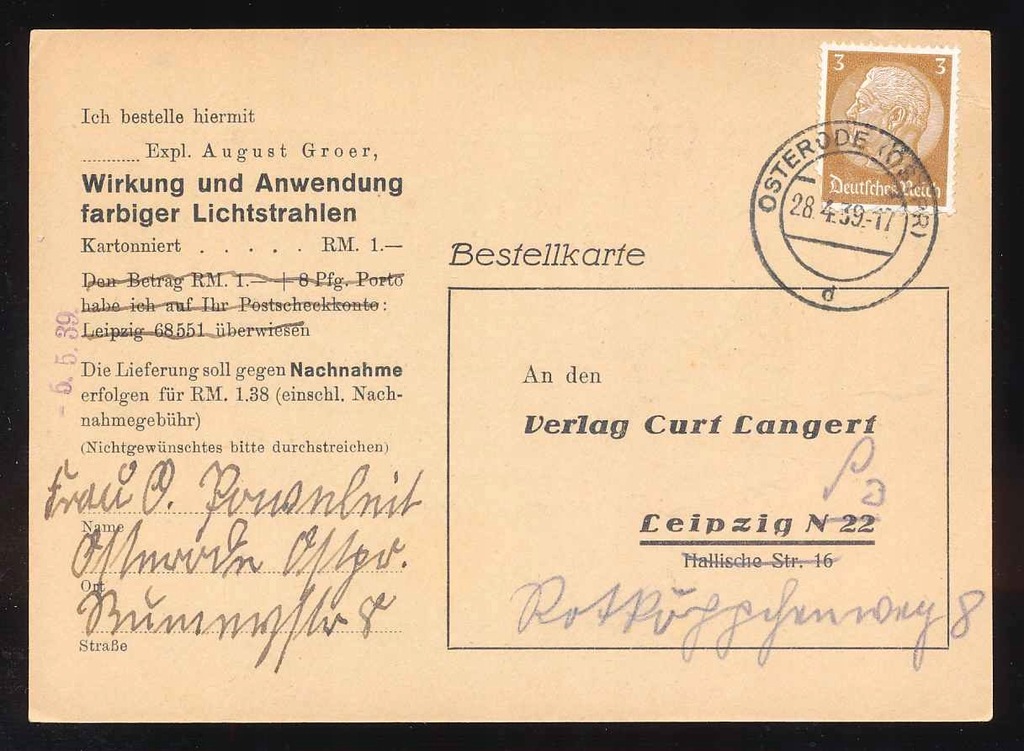 Ich bestelle hiermit
........... Expl. August Groer,
Wirkung und Anwendung
farbiger Lichtstrahlen
Kartonniert . . . . . RM. 1.—
Den Betrag RM. 1.— + 8 Pfg. Porto
habe ich auf Ihr Postscheckkonto:
Leipzig 68551 überwiesen
Die Lieferung soll gegen Nachnahme
erfolgen für RM. 1.38 (einschl. Nach-
nahmegebühr)
(Nichtgewünschtes bitte durchstreichen)
Frau O.
Name
Osterode Ostpr.
Ort
8
Straße
- 5. 5. 39
3 3
Deutsches Reich
OSTERODE (OSTPR)
28.4.39.-17
d
Bestellkarte
An den
Verlag Curt Langert
Leipzig N 22
Hallische Str. 16
Rotkäppchenweg 8